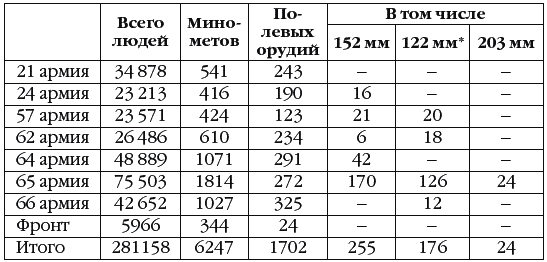 Всего людей Мино- метов По- левых орудий В том числе
152 мм 122 мм* 203 мм
21 армия 34 878 541 243 – – –
24 армия 23 213 416 190 16 – –
57 армия 23 571 424 123 21 20 –
62 армия 26 486 610 234 6 18 –
64 армия 48 889 1071 291 42 – –
65 армия 75 503 1814 272 170 126 24
66 армия 42 652 1027 325 – 12 –
Фронт 5966 344 24 – – –
Итого 281158 6247 1702 255 176 24